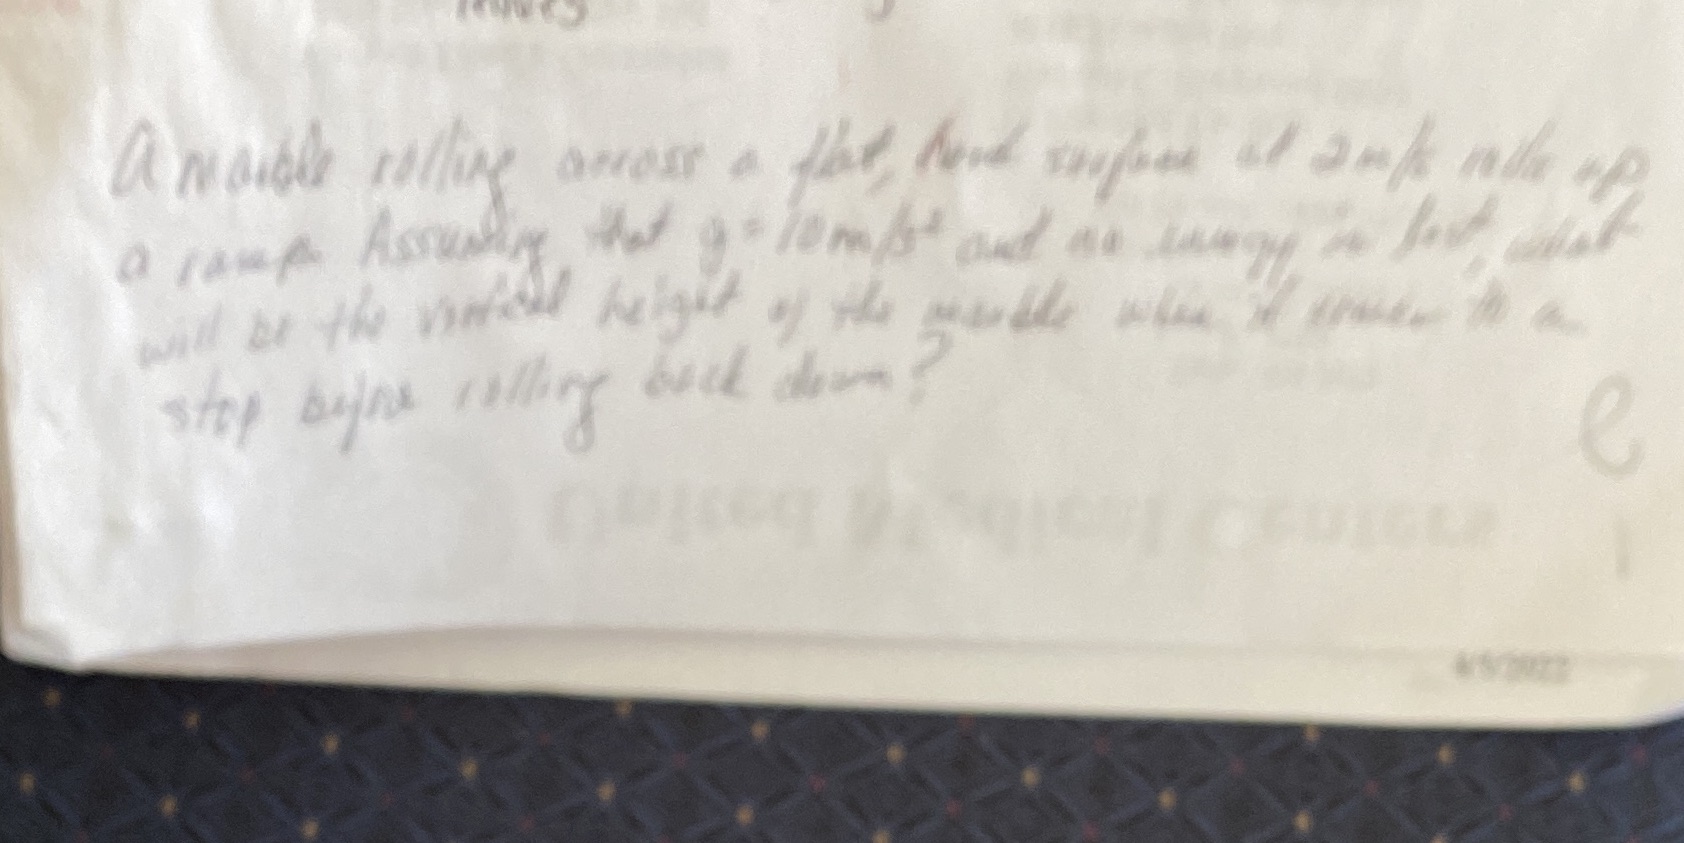 leaves
A marble rolling across a flat, hard surface at 2 m/s rolls up
a ramp. Assuming that g = 10 m/s² and no energy is lost, what
will be the vertical height of the marble when it comes to a
stop before rolling back down?
e
4/5/2022